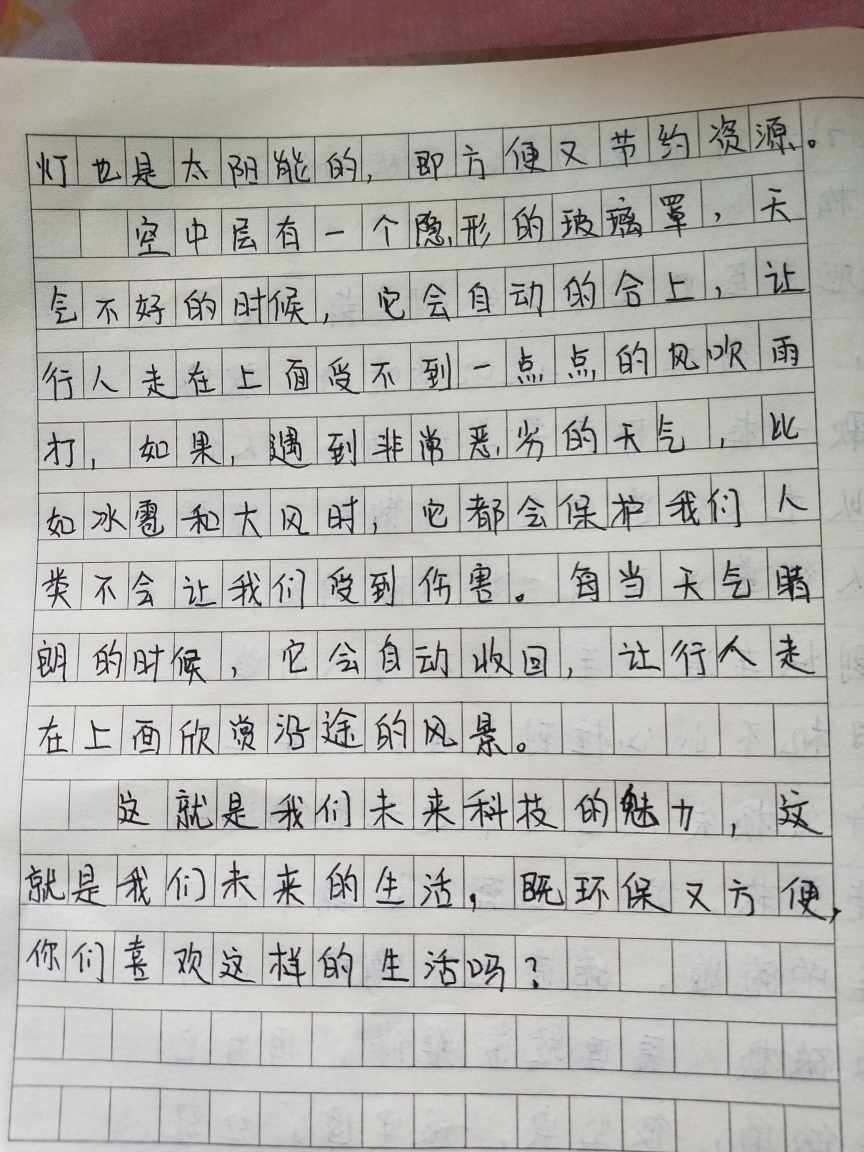 灯也是太阳能的，即方便又节约资源。
空中层有一个隐形的玻璃罩，天
气不好的时候，它会自动的合上，让
行人走在上面受不到一点点的风吹雨
打，如果，遇到非常恶劣的天气，比
如冰雹和大风时，它都会保护我们人
类不会让我们受到伤害。每当天气晴
朗的时候，它会自动收回，让行人走
在上面欣赏沿途的风景。
这就是我们未来科技的魅力，这
就是我们未来的生活，既环保又方便，
你们喜欢这样的生活吗？